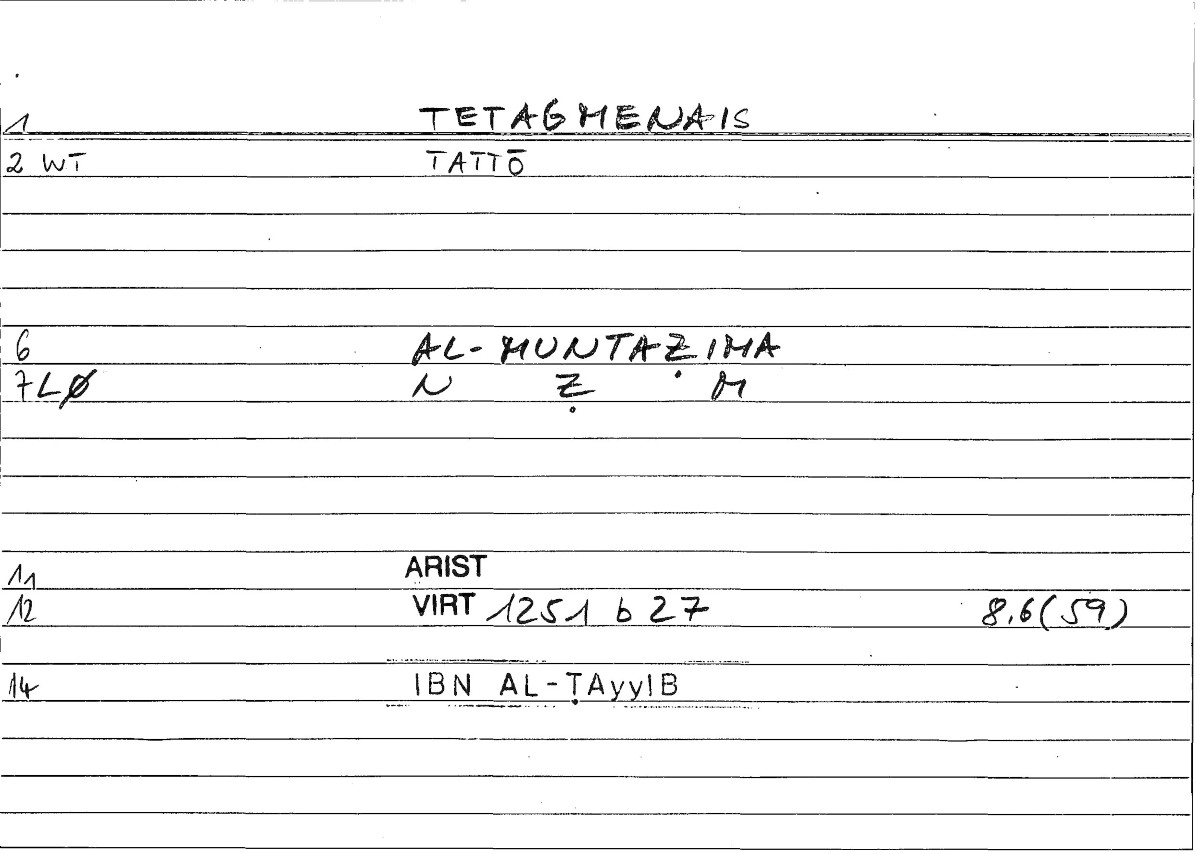 1 TETAGMENAIS
2 WT TATTŌ
6 AL-MUNTAẒIMA
7LØ N Ẓ M
11 ARIST
12 VIRT 1251 b 27 8.6(59)
14 IBN AL-ṬAyyIB